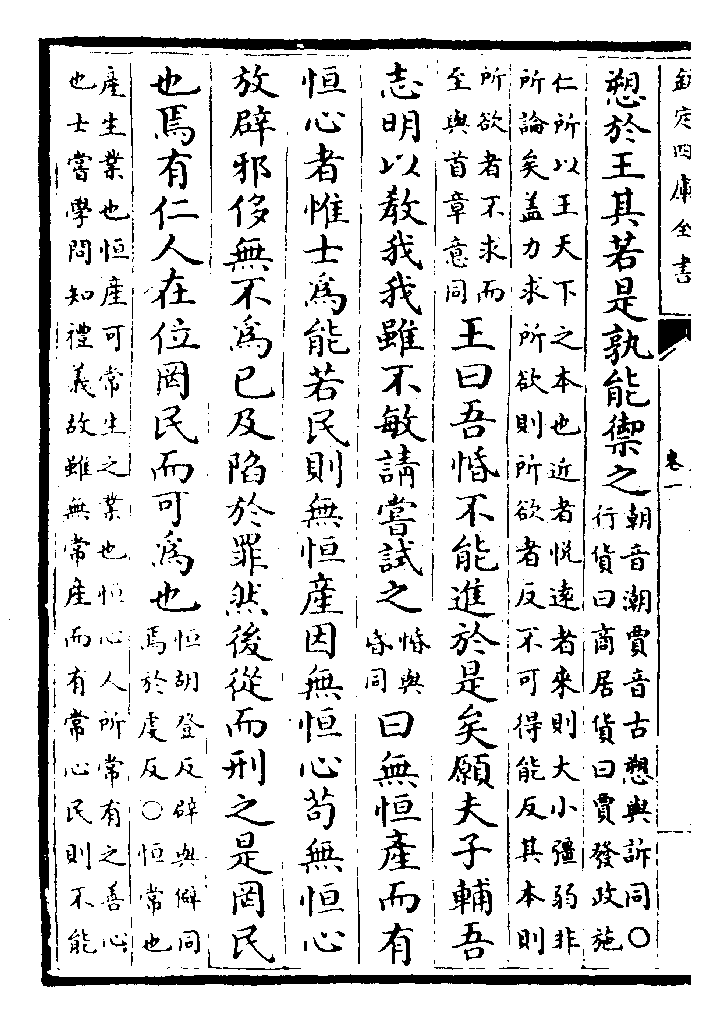 欽定四庫全書 卷一
愬於王其若是孰能禦之朝音潮賈音古愬與訴同○
行貨曰商居貨曰賈發政施
仁所以王天下之本也近者悅遠者來則大小彊弱非
所論矣盖力求所欲則所欲者反不可得能反其本則
所欲者不求而
至與首章意同王曰吾惛不能進於是矣願夫子輔吾
志明以敎我我雖不敏請嘗試之惛與
昏同曰無恒産而有
恒心者惟士爲能若民則無恒産因無恒心苟無恒心
放辟邪侈無不爲已及陷於罪然後從而刑之是罔民
也焉有仁人在位罔民而可爲也恒胡登反辟與僻同
焉於虔反○恒常也
産生業也恒産可常生之業也恒心人所常有之善心
也士嘗學問知禮義故雖無常産而有常心民則不能